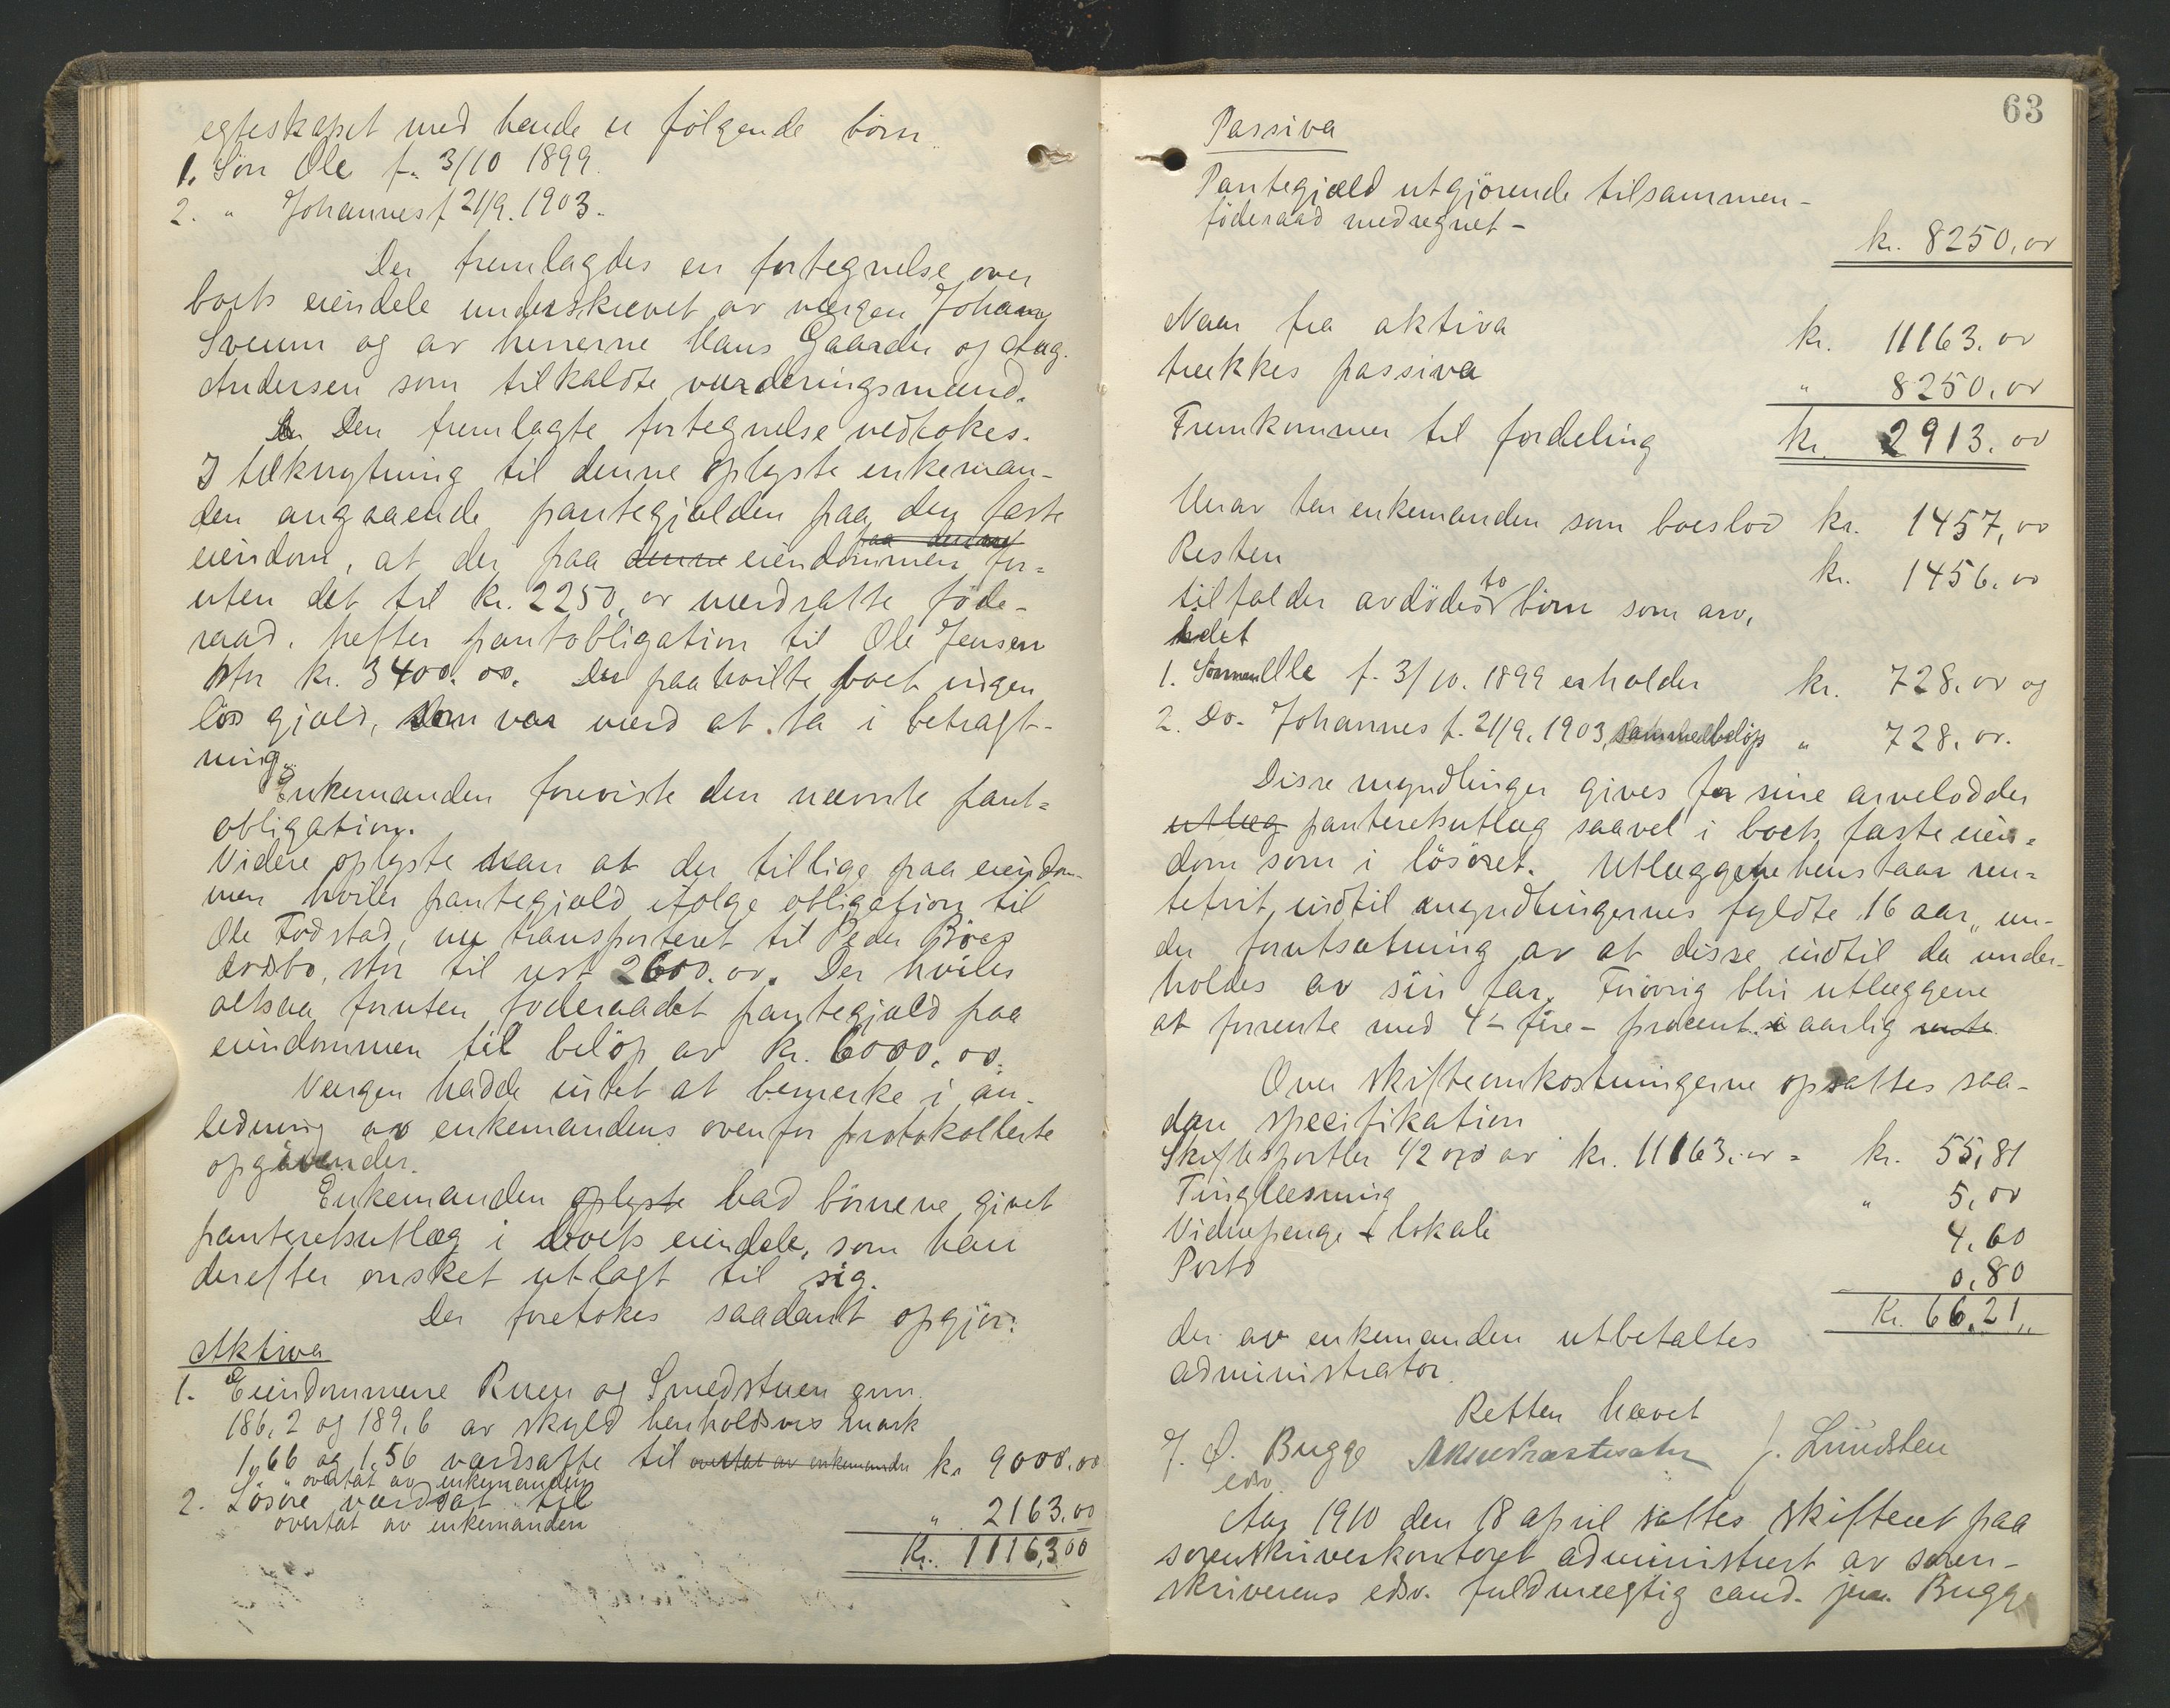 egteskapet med hende er følgende börn.
1. Sön Ole f. 3/10 1899.
2. " Johannes f 21/9. 1903.
Der fremlagdes en fortegnelse over
boets eiendele underskrevet av vergen Johan
Sveum og av herrerne Hans Gaarder og Aug.
Andersen som tilkaldte vurderingsmænd.
Den fremlagte fortegnelse vedtokes.
I tilknytning til denne oplyste enkeman-
den angaaende pantegjælden paa den faste
eiendom, at der paa denne eiendommen for-
uten det til kr. 2250,00 værdsatte föde-
raad, hefter pantobligation til Ole Jensen
stor kr. 3400.00. Der paahvilte boet ingen
lös gjæld, som var værd at ta i betragt-
ning.
Enkemanden foreviste den nævnte pant-
obligation.
Videre oplyste han at der tillige paa eiendom-
men hviler pantegjæld ifölge obligation til
Ole Fodstad, nu transporteret til Peder
stor til rest 2600.00. Der hviler
altsaa foruten föderaadet pantegjæld paa
eiendommen til belöp av kr. 6000.00.
Vergen hadde intet at bemerke i an-
ledning av enkemandens ovenfor protokollerte
opgivender.
Enkemanden oplyste bad börnene givet
panteretsutlæg i boets eiendele, som han
derefter önsket utlagt til sig.
Der foretokes saadant opgjör:
Aktiva
1. Eiendommene Ruen og Smedstuen gnr.
186,2 og 189,6 av skyld henholdsvis mark
1,66 og 1,56 værdsatte til overtat av enkemanden kr 9000.00
overtat av enkemanden
2. Lösöre værdsat til
overtat av enkemanden " 2163.00
Kr. 11163,00
63
Passiva
Pantegjæld utgjörende tilsammen -
föderaad medregnet -
kr. 8250,00
Naar fra aktiva kr. 11163.00
trækkes passiva " 8250.00
Fremkommer til fordeling kr. 2913.00
Herav tar enkemanden som boeslod kr. 1457,00
Resten kr. 1456.00
tilfalder avdödes to börn som arv,
idet
1. Sönnen Ole f. 3/10. 1899 erholder kr. 728.00 og
2. Do. Johannes f. 21/9. 1903, samme belöp " 728.00.
Disse myndlinger gives for sine arvelodder
utlæg panteretsutlæg saavel i boets faste eien-
dom som i lösöret. Utlæggene henstaar ren-
tefrit indtil myndlingernes fyldte 16 aar, un-
der forutsætning av at disse indtil da under-
holdes av sin far. Forövrig blir utlæggene
at forrente med 4 - fire - procent aarlig rente
Over skifteomkostningerne opsattes saa-
dan specifikation
Skiftesportler 1/2 o/o av kr. 11163.00 = kr. 55,81
Tinglæsning " 5,00
Vidnepenge + lokale 4.60
Porto 0,80
Kr. 66,21
der av enkemanden utbetaltes
administrator.
Retten hævet
J. O. Bugge J. Lundsten
edsv.
Aar 1910 den 18 april sattes skifteret paa
sorenskriverkontoret administrert av soren-
skriverens edsv. fuldmægtig cand. jur. Bugge